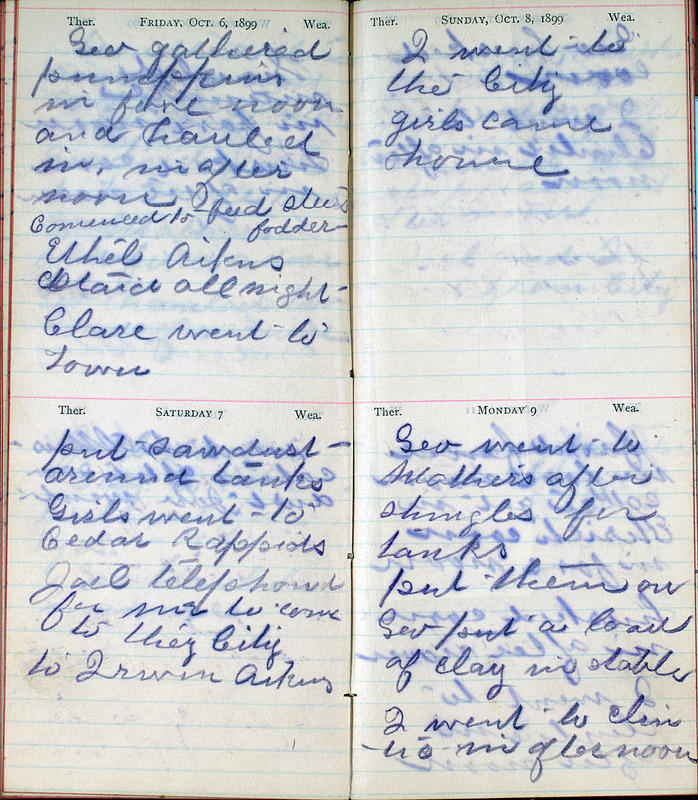 Ther. FRIDAY, OCT. 6, 1899 Wea.
Geo gathered
pumppkins
in fore noon
and hauled
in, in after
noon I feed steers
Comenced to fodder
Ethel Aikins
Staid all night
Clare went to
Town
Ther. SATURDAY 7 Wea.
put sawdust
around tanks
Girls went to
Cedar Rappids
Jael telephoned
for me to come
to they City
to Irwin Aikins
Ther. SUNDAY, OCT. 8, 1899 Wea.
I went to
the City
girls came
home
Ther. MONDAY 9 Wea.
Geo went to
Mothers after
shingles for
tanks
put them on
Geo put a load
of clay in stable
I went to Clin
-to- in afternoon